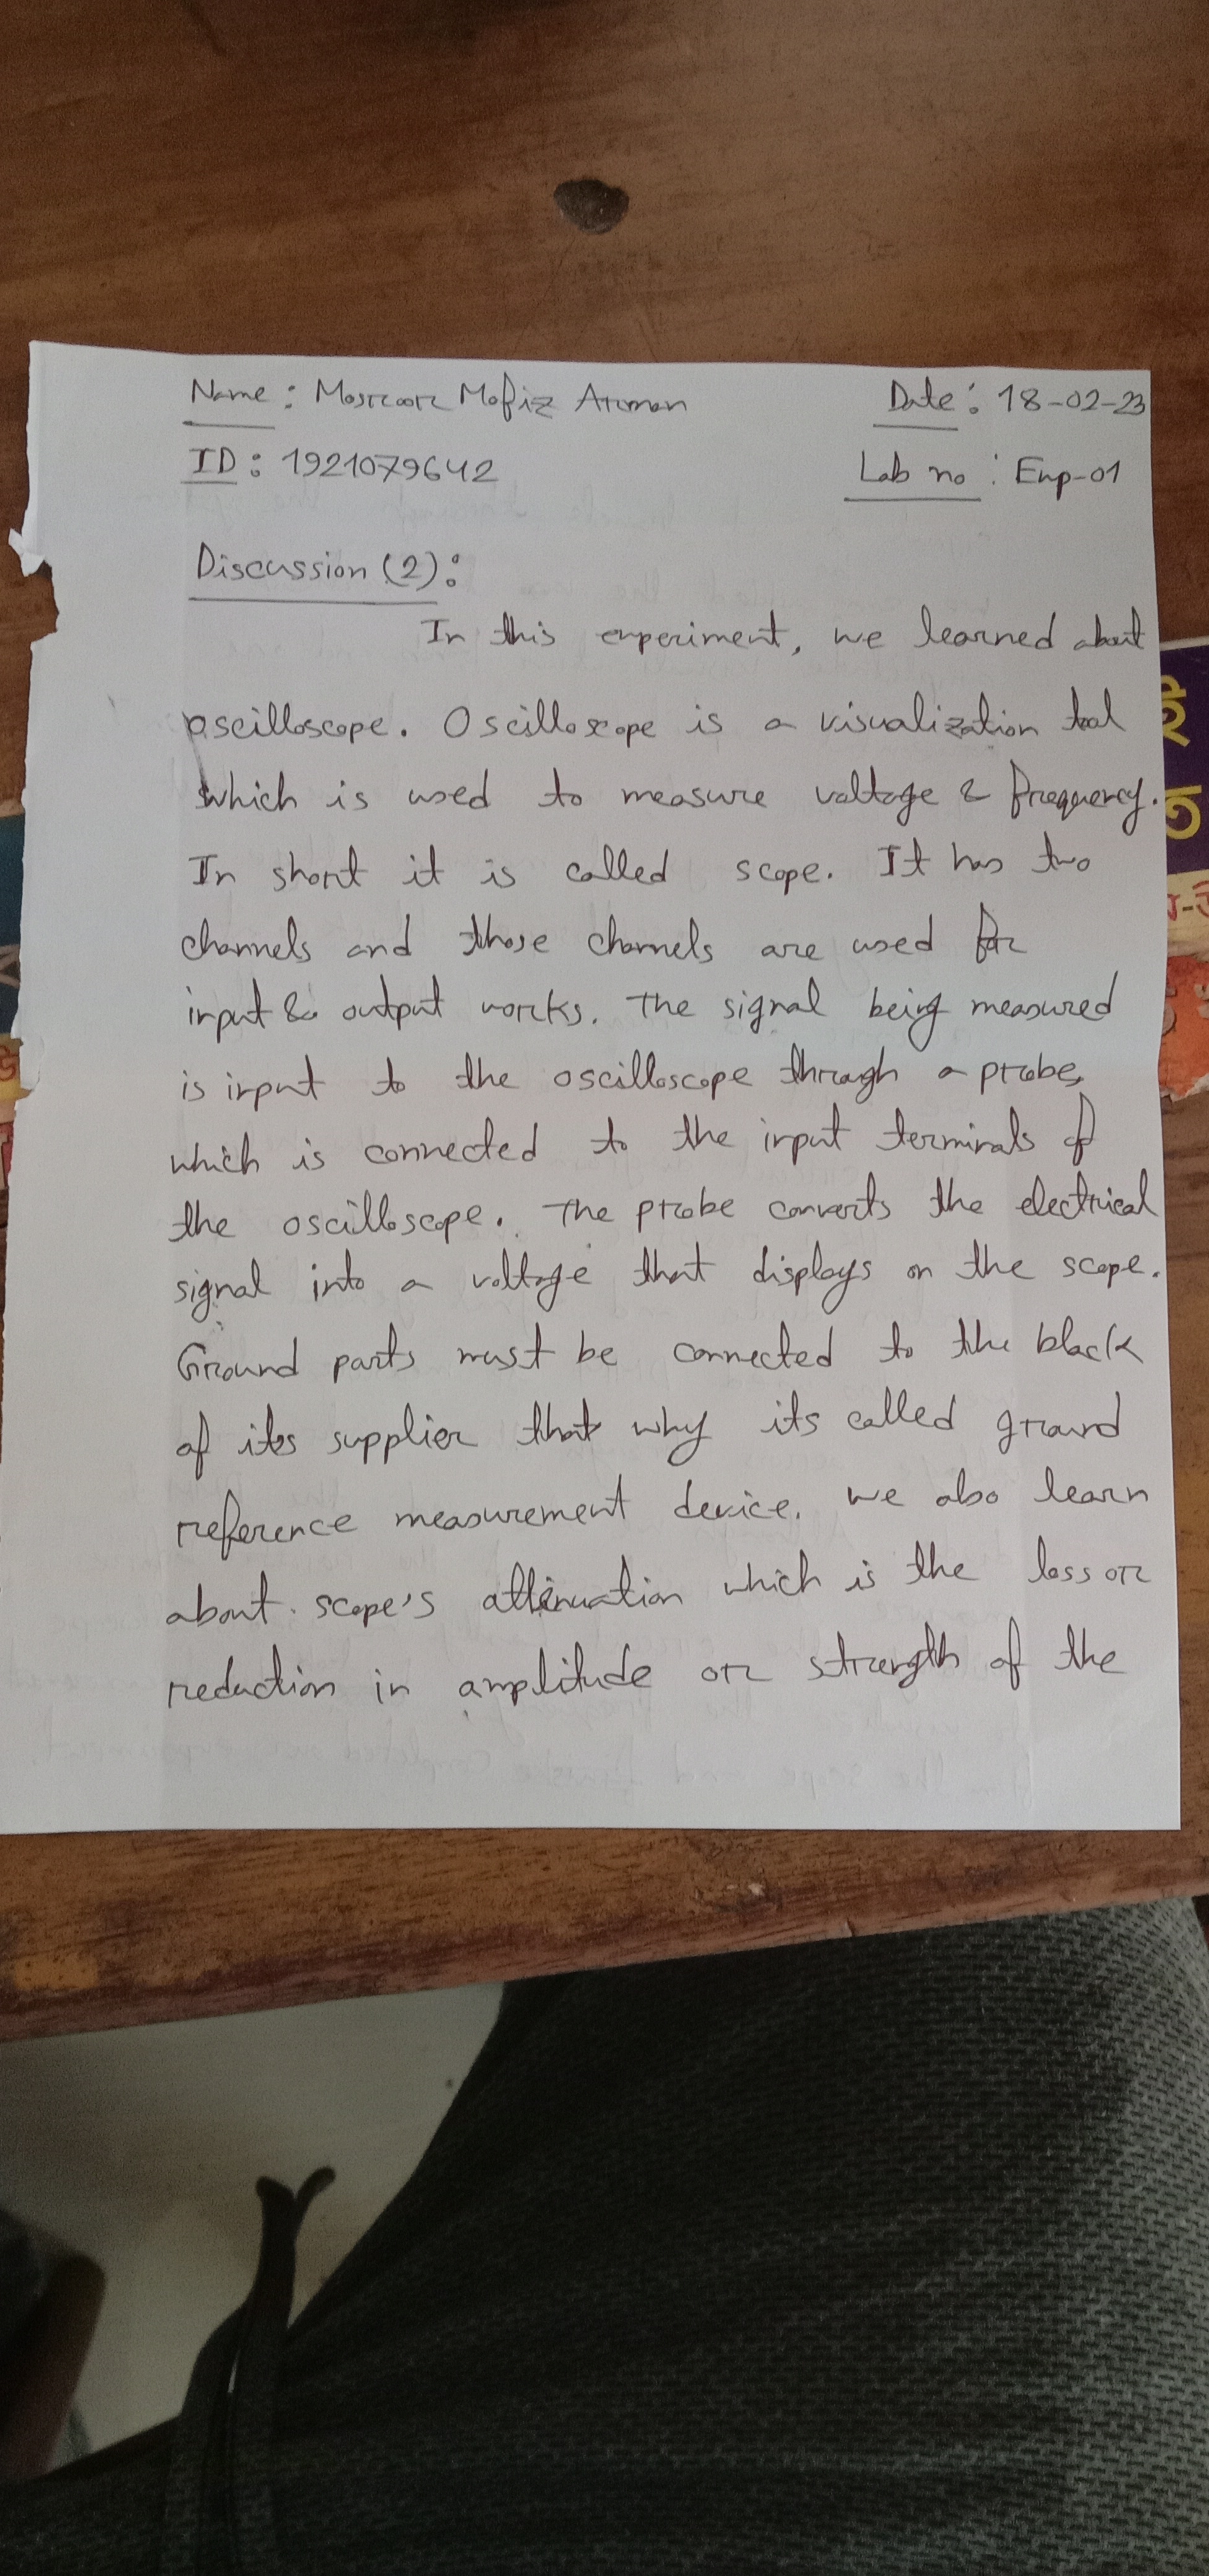 Name: Mosroor Mofiz Arman
Date: 18-02-23
ID: 1921079642
Lab no: Exp-01
Discussion (2):
In this experiment, we learned about
oscilloscope. Oscilloscope is a visualization tool
which is used to measure voltage & frequency.
In short it is called scope. It has two
channels and those channels are used for
input & output works. The signal being measured
is input to the oscilloscope through a probe,
which is connected to the input terminals of
the oscilloscope. The probe converts the electrical
signal into a voltage that displays on the scope.
Ground parts must be connected to the black
of its supplier that why its called ground
reference measurement device. we also learn
about scope's attenuation which is the loss or
reduction in amplitude or strength of the